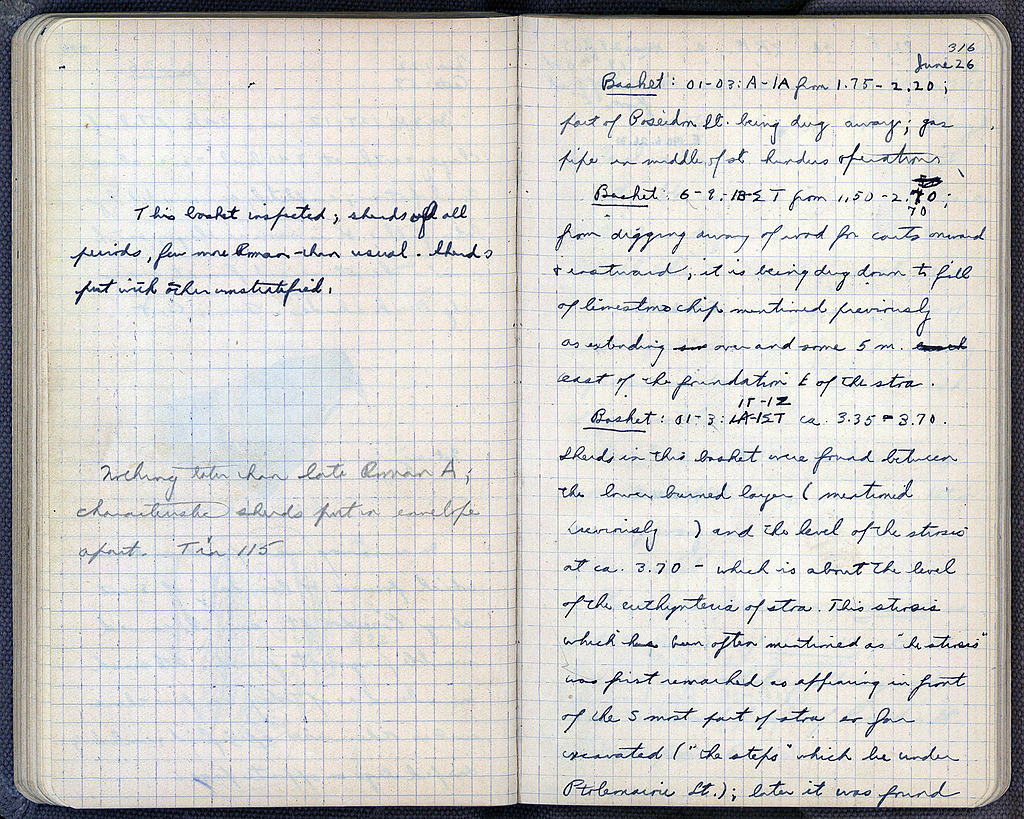 This basket inspected; sherds of all
periods, few more Roman than usual. Sherds
put with other unstratified.
Nothing later than late Roman A;
characteristic sherds put in envelope
apart. Tin 115
316
June 26
Basket: 01-03: A-1A from 1.75-2.20;
part of Poseidon St. being dug away; gas
pipe in middle of st hinders operations
Basket: 6-9: from 1.50-2.70;
70
from digging away of road for carts onward
& eastward; it is being dug down to fill
of limestone chip mentioned previously
as extending over and some 5 m.
east of the foundation E of the stoa.
15-12
Basket: 01-3: ca. 3.35-3.70.
Sherds in this basket were found between
the lower burned layer (mentioned
previously ) and the level of the strosis
at ca. 3.70 - which is about the level
of the euthynteria of stoa. This strosis
which has been often mentioned as "the strosis"
was first remarked as appearing in front
of the S most part of stoa so far
excavated ("the steps" which lie under
Ptolemaion St.); later it was found